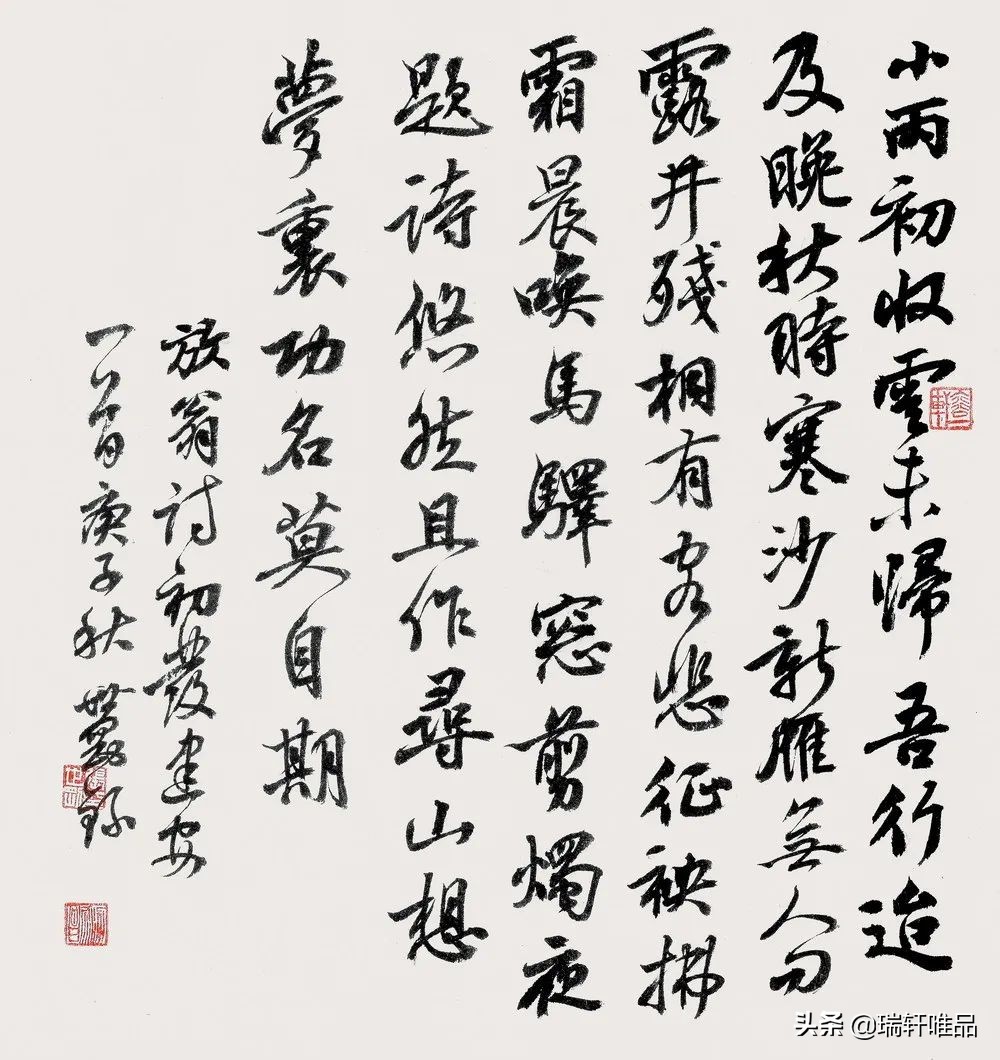 小雨初收雲未歸吾行迨
及晚秋時寒沙新雁無人问
露井殘桐有客悲征袂拂
霜晨喚馬驛窓剪燭夜
題詩悠然且作尋山想
夢裏功名莫自期
放翁詩初發建安
一首庚子秋錄
头条 @瑞轩唯品